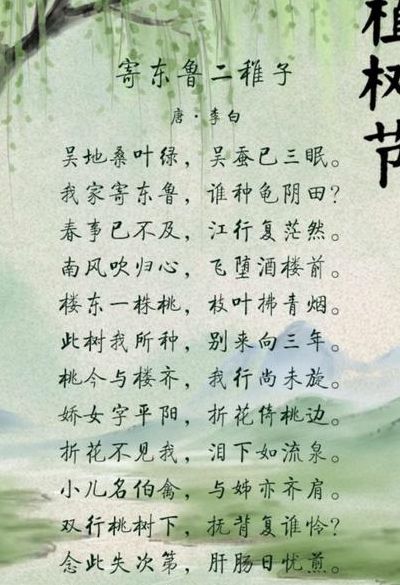 植树节
寄东鲁二稚子
唐·李白
吴地桑叶绿，吴蚕已三眠。
我家寄东鲁，谁种龟阴田？
春事已不及，江行复茫然。
南风吹归心，飞堕酒楼前。
楼东一株桃，枝叶拂青烟。
此树我所种，别来向三年。
桃今与楼齐，我行尚未旋。
娇女字平阳，折花倚桃边。
折花不见我，泪下如流泉。
小儿名伯禽，与姊亦齐肩。
双行桃树下，抚背复谁怜？
念此失次第，肝肠日忧煎。